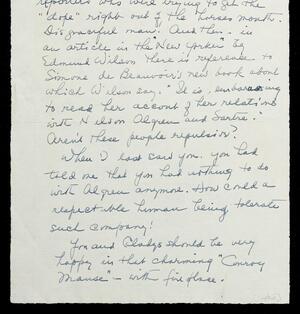 reporters who were trying to get the
"dope" right out of the horses mouth.
Disgraceful man! And then - in
an article in the New Yorker by
Edmund Wilson there is reference to
Simone de Beauvoir's new book about
which Wilson say, "It is embarrassing
to read her account of her relations
with Nelson Algren and Sartre."
Aren't these people repulsive?
When I last saw you, you had
told me that you had nothing to do
with Algren anymore. How could a
respectable human being tolerate
such company!
You and Gladys should be very
happy in that charming "Conroy
Manse" - with fireplace.